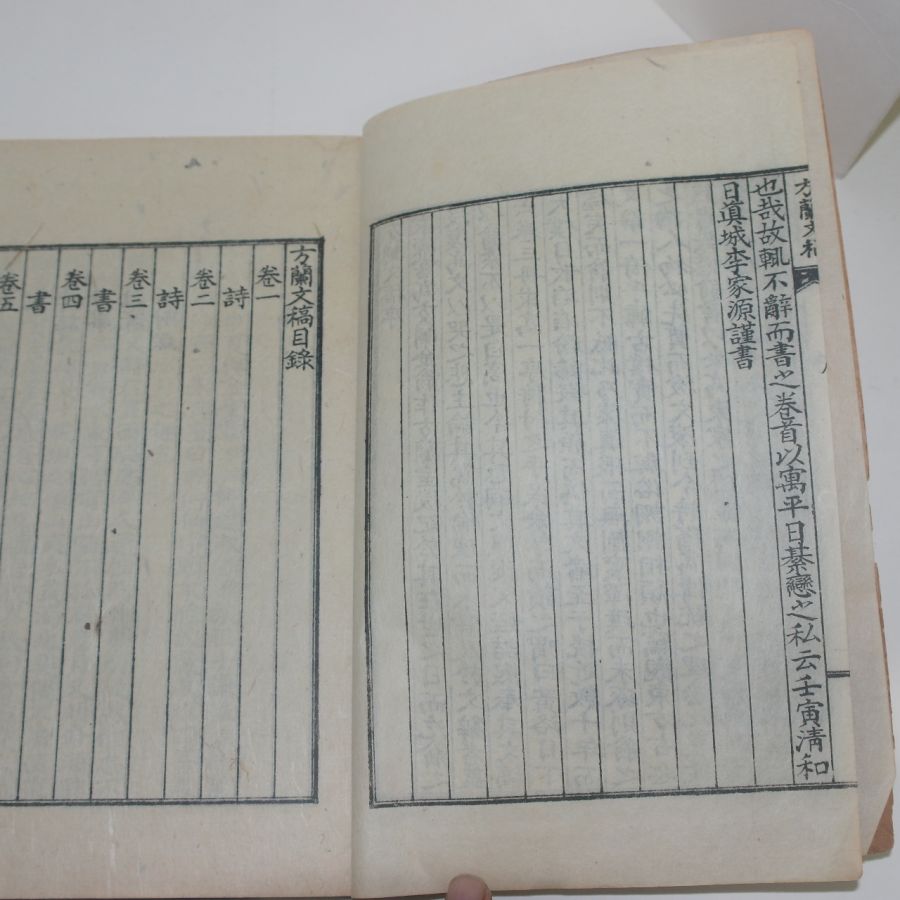 方蘭文稿
也哉故輒不辭而書之卷首以寓平日綦戀之私云壬寅淸和
日眞城李家源謹書
方蘭文稿目錄
卷一
詩
卷二
詩
卷三
書
卷四
書
卷五